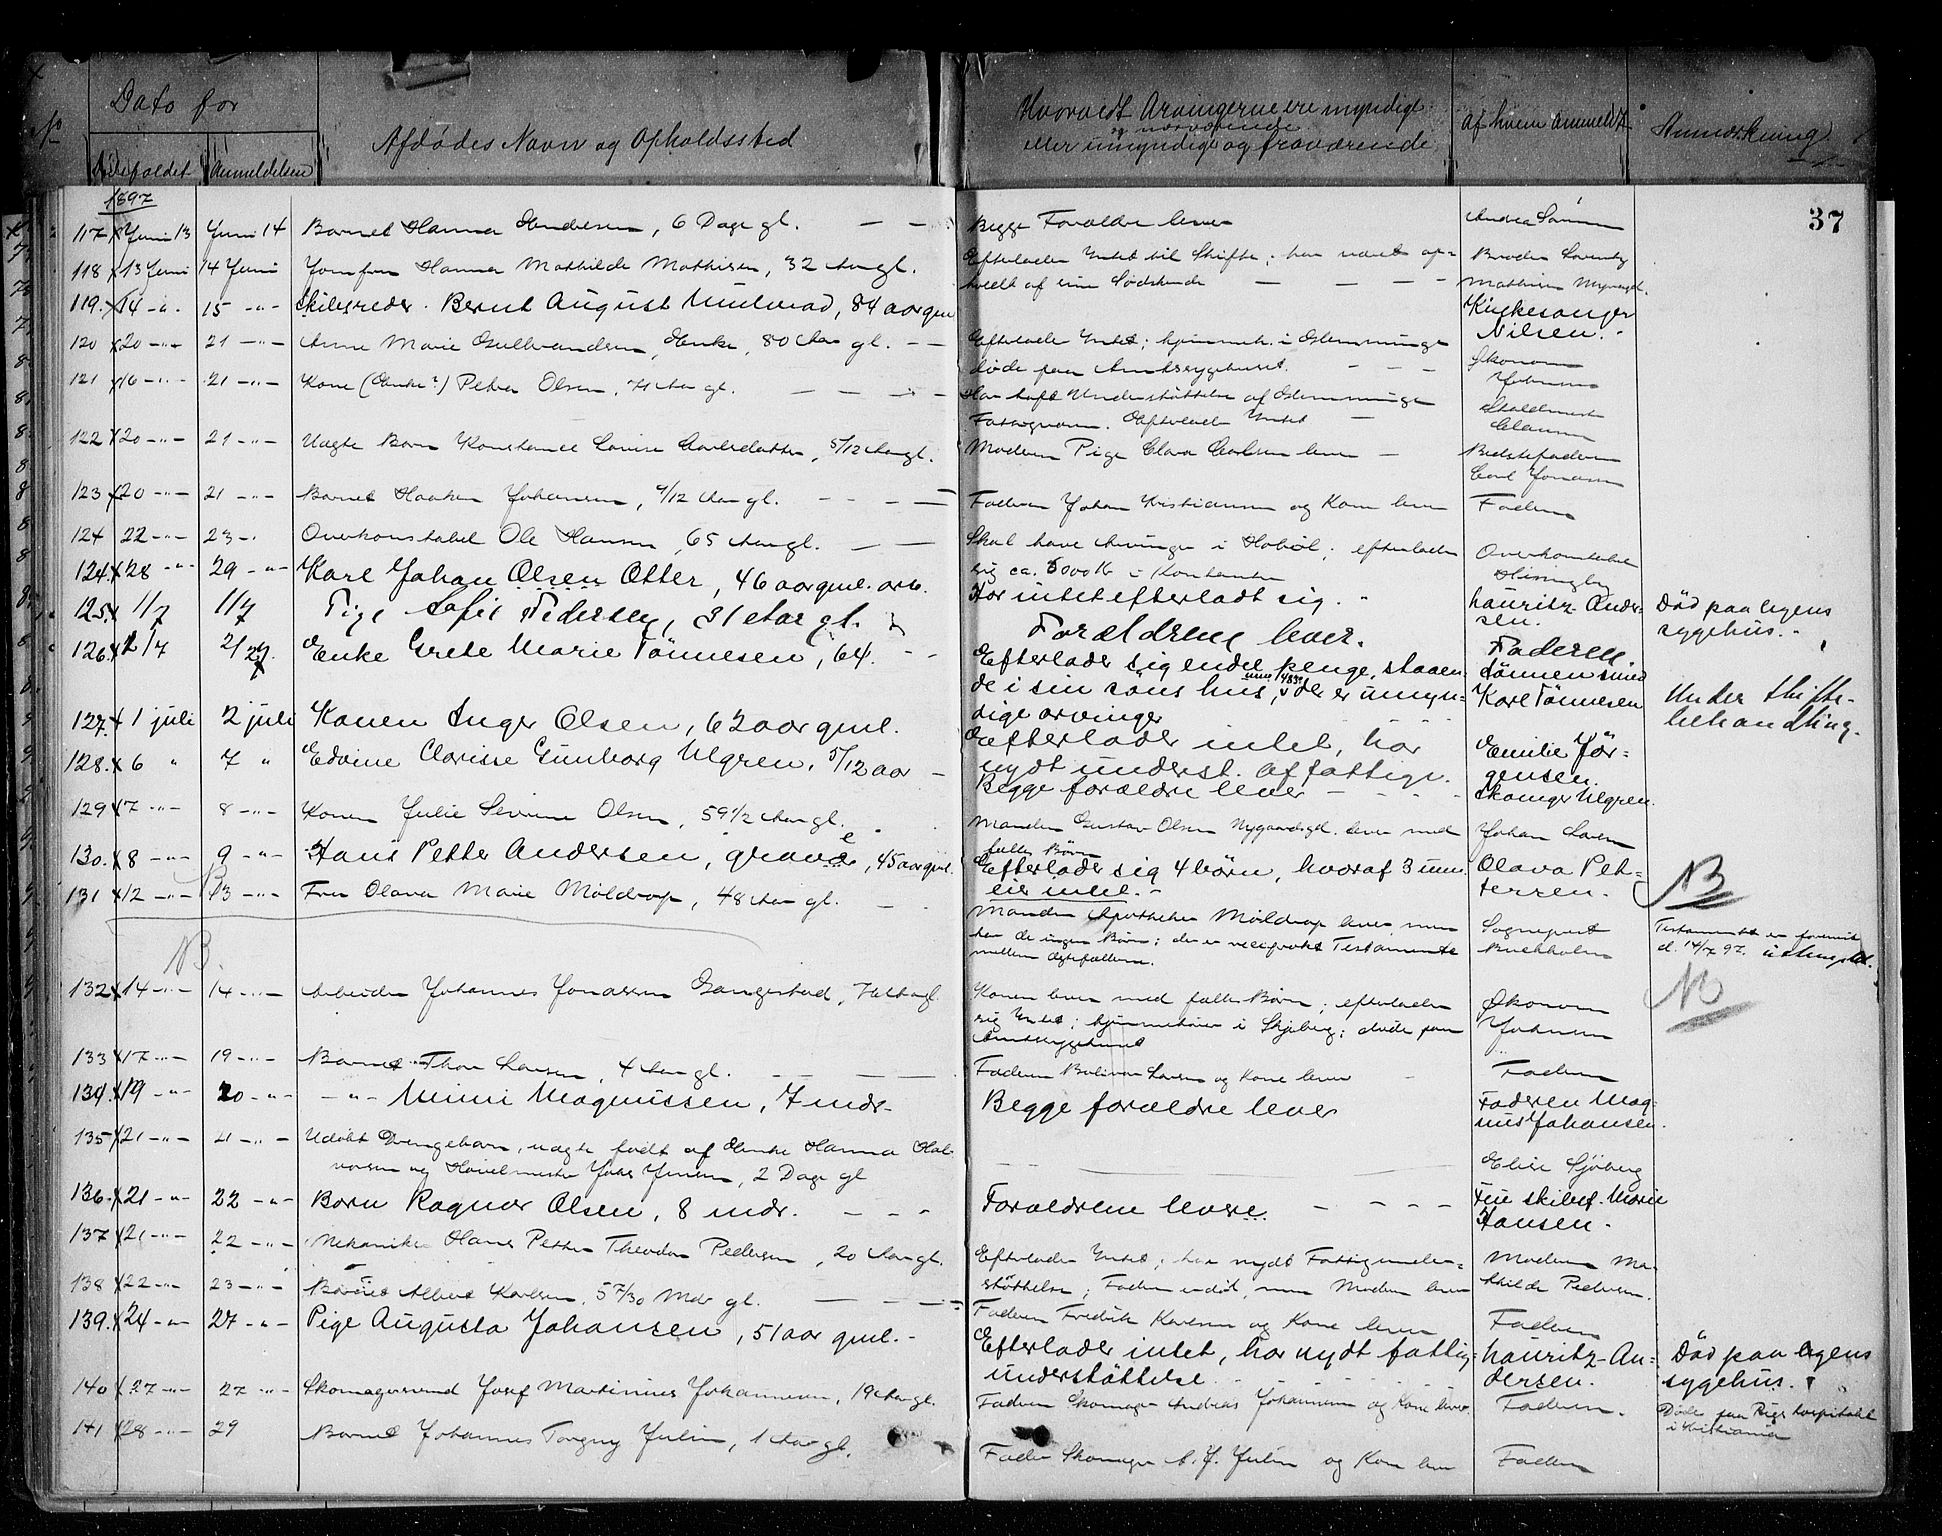 Dato for
Dødsfaldet Anmeldelsen
Afdødes Navn og Opholdssted
Hvorvidt Arvingerne ere myndige
og nærværende
eller umyndige og fraværende
Af hvem anmeldt
Anmærkning
37
1897
117 Juni 13 Juni 14 Barnet Hanna Andresen, 6 Dage gl. — — Begge Forældre lever Andrea
118 13 Juni 14 Juni Jomfru Hanna Mathilde Mathisen, 32 Aar gl. Efterlader Intet til Skifte; har været op- Broder
holdt af sine Sødskende — — — Mathisen
119. 14 -"- 15 -"- Skibsreder. Bernt August 84 aar gml Kirkesanger
Nilsen.
120 20 -"- 21 -"- Anne Marie Gulbrandsen, Enke, 80 Aar gl. — — Efterlader Intet; hjemmeh. i Glemminge
døde paa Amtssygehuset. — — — Økonom
Johnsen
121 16 -"- 21 -"- Kone (Enke?) Petra Olsen, 71 Aar gl. — — — — Har havt Understøttelse af Glemminge
Fattigvæsen. Efterlader Intet —
Clausen
122 20 -"- 21 -"- Uægte Barn Konstance Lovise Carlsdatter, 5/12 Aar gl. Moderen Pige Clara Carlsen lever — Bedstefaderen
Carl Jonassen
123 20 -"- 21 -"- Barnet Haakon Johansen, 4/12 Aar gl. — — — Faderen Johan Kristiansen og Kone lever Faderen
124 22 -"- 23 -" Overkonstabel Ole Hansen, 65 Aar gl. — — Skal have Arvinger i Hobøl; efterlader Overkonstabel
sig ca. 5000 Kr i Kontanter
124. 28 -"- 29 -"- Karl Johan Olsen Otter, 46 aar gml. arb. Har intet efterladt sig. Lauritz Ander-
sen. Død paa byens
sygehus. -
125. 1/7 1/7 Pige Sofie Pedersen, 31 Aar gl. Forældrene lever. Faderen.
126 2/7 2/7 Enke Grete Marie Tønnesen, 64. - - Efterlader sig endel penge, staaen-
de i sin søns hus, der er umyn-
dige arvinger Sønnen smed
Karl Tønnesen Under skifte-
behandling.
127. 1 juli 2 juli Konen Inger Olsen, 62 aar gml. Efterlader intet, har
nydt underst. af fattigv. Emilie Jør-
gensen.
128. 6 " 7 " Edvine Clarisse Gunborg Ulgren, 5/12 aar — Begge forældre lever — — — Ulgren.
129 7 -"- 8 -"- Konen Julie Sevrine Olsen, 59 1/2 Aar gl. Manden Gustav Olsen Nygaardsgd. lever med
fælles Børn Johan Larsen
130. 8 -"- 9 -"- Hans Petter Andersen, graver, 45 aar gml. Efterlader sig 4 børn, hvoraf 3 um.
eier intet. - Olava Pet-
tersen. NB
131 12 -"- 13 -"- Fru Olava Marie Møldrup, 48 Aar gl. — — Manden Apotheker Møldrup lever, men
har de ingen Børn; der er reciprokt Testamente
mellem Ægtefællerne. Sogneprest
Buchholm Testamentet er forevist
d. 14/7 97.
NB.
NB
132 14 -"- 14 -"- Arbeider Johannes Jonassen Gangestad, Aar gl. Konen lever med fælles Børn; efterlader
sig Intet; hjemmehører i Skjeberg; døde paa
Amtssygehuset Økonom
Johnsen
133 17 -"- 19 -"- Barnet Thor Larsen, 4 Aar gl. — — — Faderen Bolivar Larsen og Kone lever — Faderen
134. 19 -"- 20 -"- -"- Mimi Magnussen, 7 mdr- Begge forældre lever Faderen Mag-
nus Johansen.
135 21 -"- 21 -"- Udøbt Drengebarn, uægte født af Enke Hanna Hal-
vorsen og Jensen, 2 Dage gl Elise Sjøberg
136. 21 -"- 22 -"- Barn Ragnar Olsen, 8 mdr. — — — Forældrene levere — — — — Marie
Hansen -
137 21 -"- 22 -"- Mekaniker Hans Petter Theodor Pedersen, 20 Aar gl. Efterlader Intet; har nydt Fattigunder-
støttelse; Faderen er død, men Moderen lever Moderen Ma-
thilde Pedersen.
138 22 -"- 23 -"- Barnet Albert Karlsen, 5 7/30 Mdr gl. — — — Faderen Fredrik Karlsen og Kone lever Faderen
139. 24 -"- 27 -"- Pige Augusta Johansen, 51 aar gml. - Efterlader intet, har nydt fattig-
understøttelse. Lauritz An-
dersen. Død paa byens
sygehus.
140 27 -"- 27 -"- Skomagersvend Josef Martinius Johannesen, 19 Aar gl. Faderen Skomager Andreas Johannesen og Kone lever Faderen. Døde paa Rigshospitalet
i Kristiania
141 28 -"- 29 Barnet Johannes Torgny Julin, 1 Aar gl. Fader Skomager A. J. Julin og Kone lever Faderen